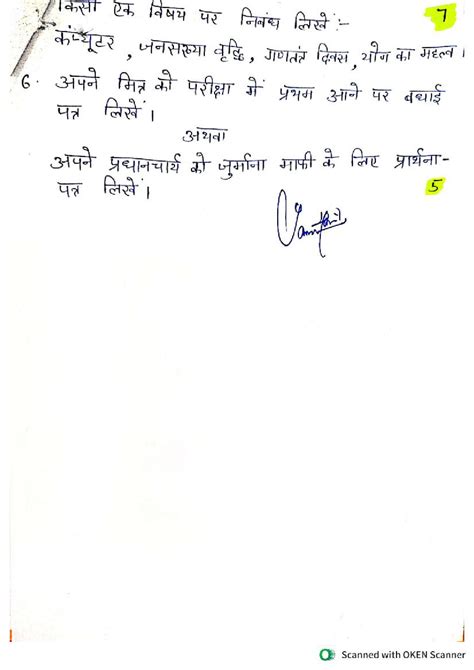 किसी एक विषय पर निबंध लिखें:- 7
कंप्यूटर, जनसंख्या वृद्धि, गणतंत्र दिवस, योग का महत्व।
6. अपने मित्र को परीक्षा में प्रथम आने पर बधाई
पत्र लिखें।
अथवा
अपने प्रधानचार्य को जुर्माना माफी के लिए प्रार्थना-
पत्र लिखें। 5
Scanned with OKEN Scanner